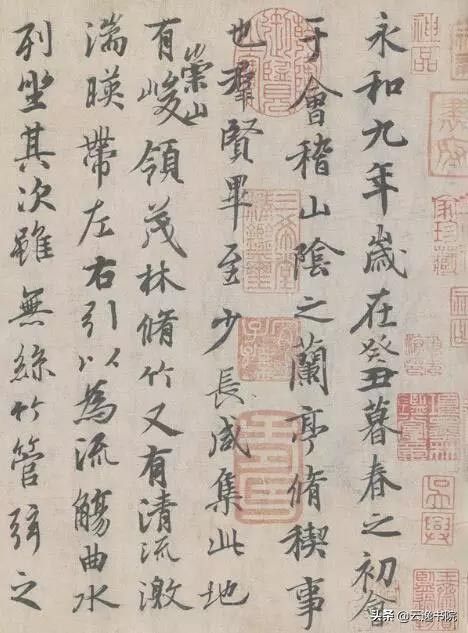 永和九年歲在癸丑暮春之初會
于會稽山陰之蘭亭脩稧事
也羣賢畢至少長咸集此地
有崇山峻領茂林脩竹又有清流激
湍暎帶左右引以為流觴曲水
列坐其次雖無絲竹管弦之
神品
三希堂精鑑璽
宜子孫
头条 @云逸书院